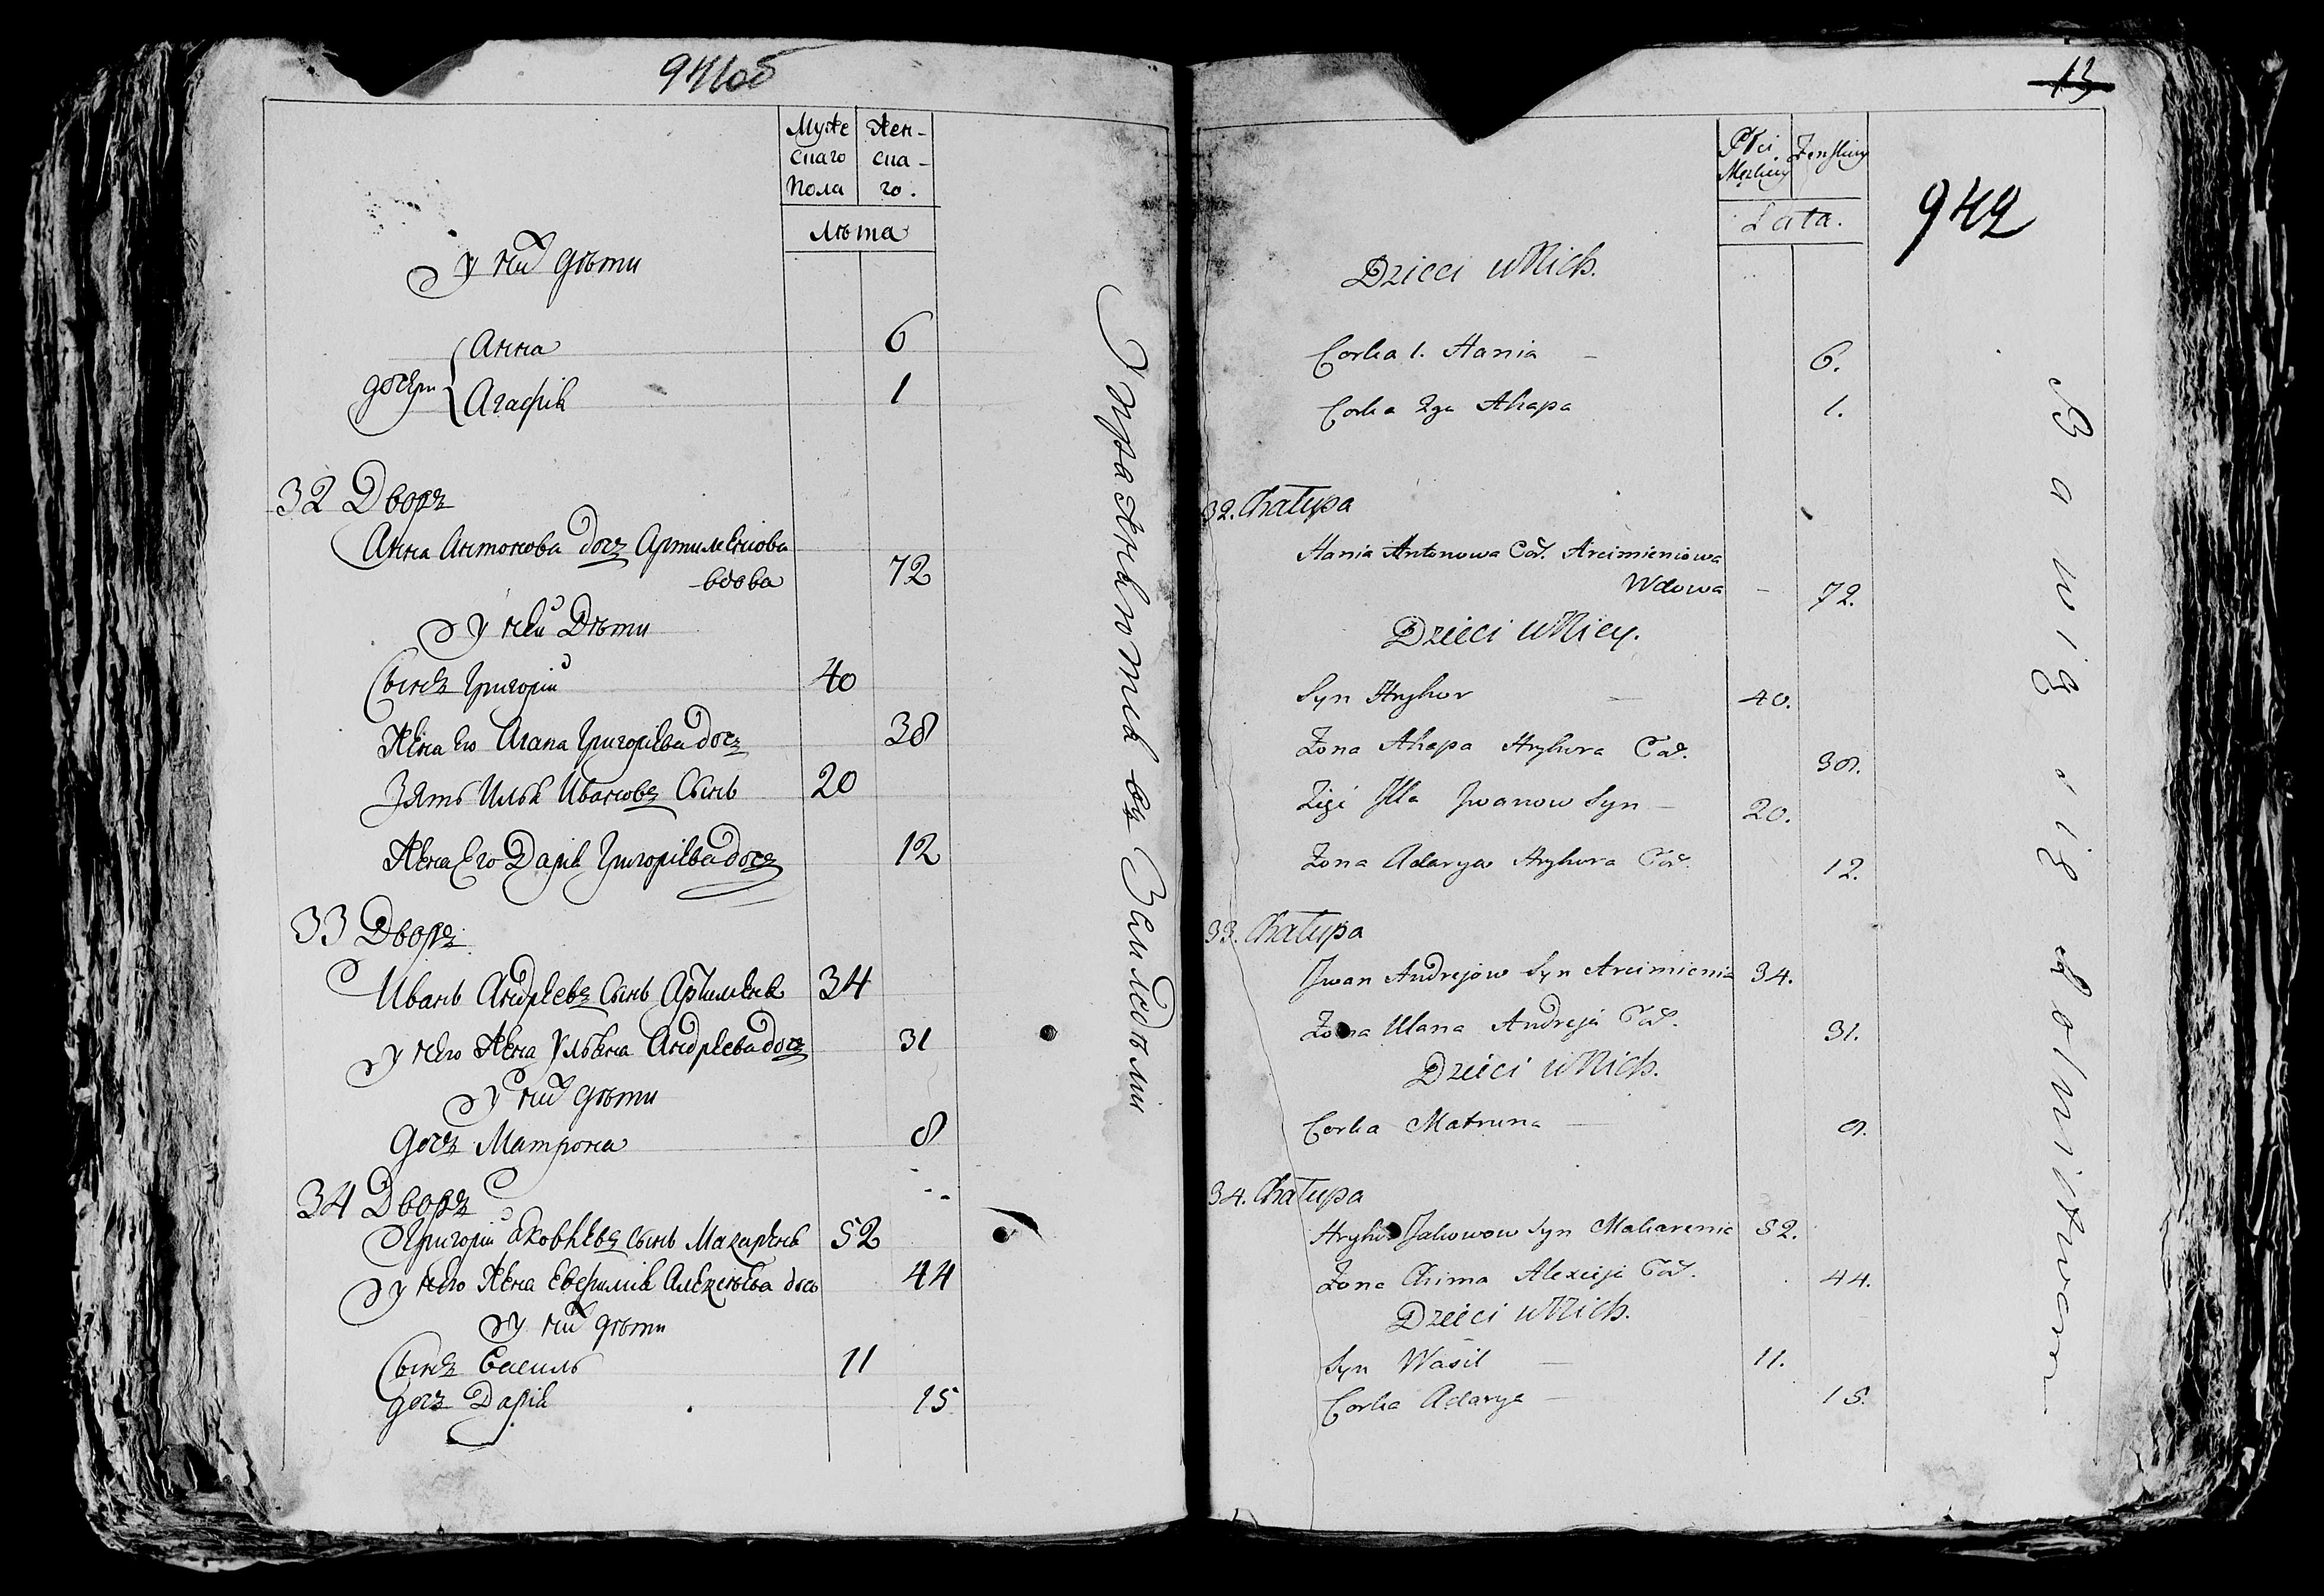 941об
Муже
скаго
Пола
Жен-
ска-
го.
Лѣта
У них дѣти
дочери
Анна 6
Агафія 1
32 Дворъ
Анна Антонова дочь Артименкова
вдова 72
У ней Дѣти
Сынъ Григорій 40
Жена его Агапа Григоріева дочь 38
Зять Илья Ивановъ Сынъ 20
Жена Его Дарія Григоріева дочь 12
33 Дворъ
Иванъ Андреевъ Сынъ Артименя 34
У него Жена Ульяна Андреева дочь 31
У них дѣти
дочь Матрона 8
34 Дворъ
Григорій Яковлевъ Сынъ Макарень 52
У него Жена Евфимія Алексеева дочь 44
У них дѣти
Сынъ Василь 11
дочь Дарія 15
Упражняются въ Земледѣліи
13
942
Płci
Męzkiey
Zenskiey
Lata.
Dzieci u Nich.
Corka 1. Hania - 6.
Corka 2ga Ahapa 1.
32. Chałupa
Hania Antonowa Cor. Arcimieniowa
Wdowa - 72.
Dzieci u Niey.
Syn Hryhor - 40.
Zona Ahapa Hryhora Cor. 38.
Zięć Illa Jwanow Syn - 20.
Zona Adarya Hryhora Cor. 12.
33. Chałupa
Jwan Andrejow Syn Arcimienia 34.
Zona Ulana Andreja Cor. 31.
Dzieci u Nich.
Corka Matruna - 8.
34. Chałupa
Hryhor Jakowow Syn Makarenia 52.
Zona Chima Alexieja Cor. 44.
Dzieci u Nich.
Syn Wasil - 11.
Corka Adarya - 15.
Bawią się Rolnictwem